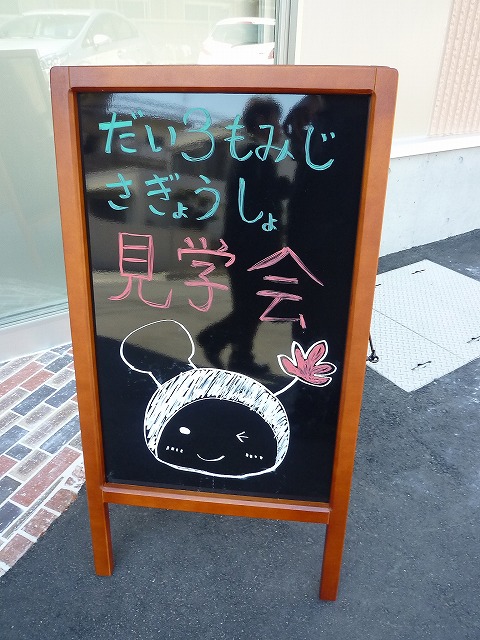 だい3もみじ
さぎょうしょ
見学会